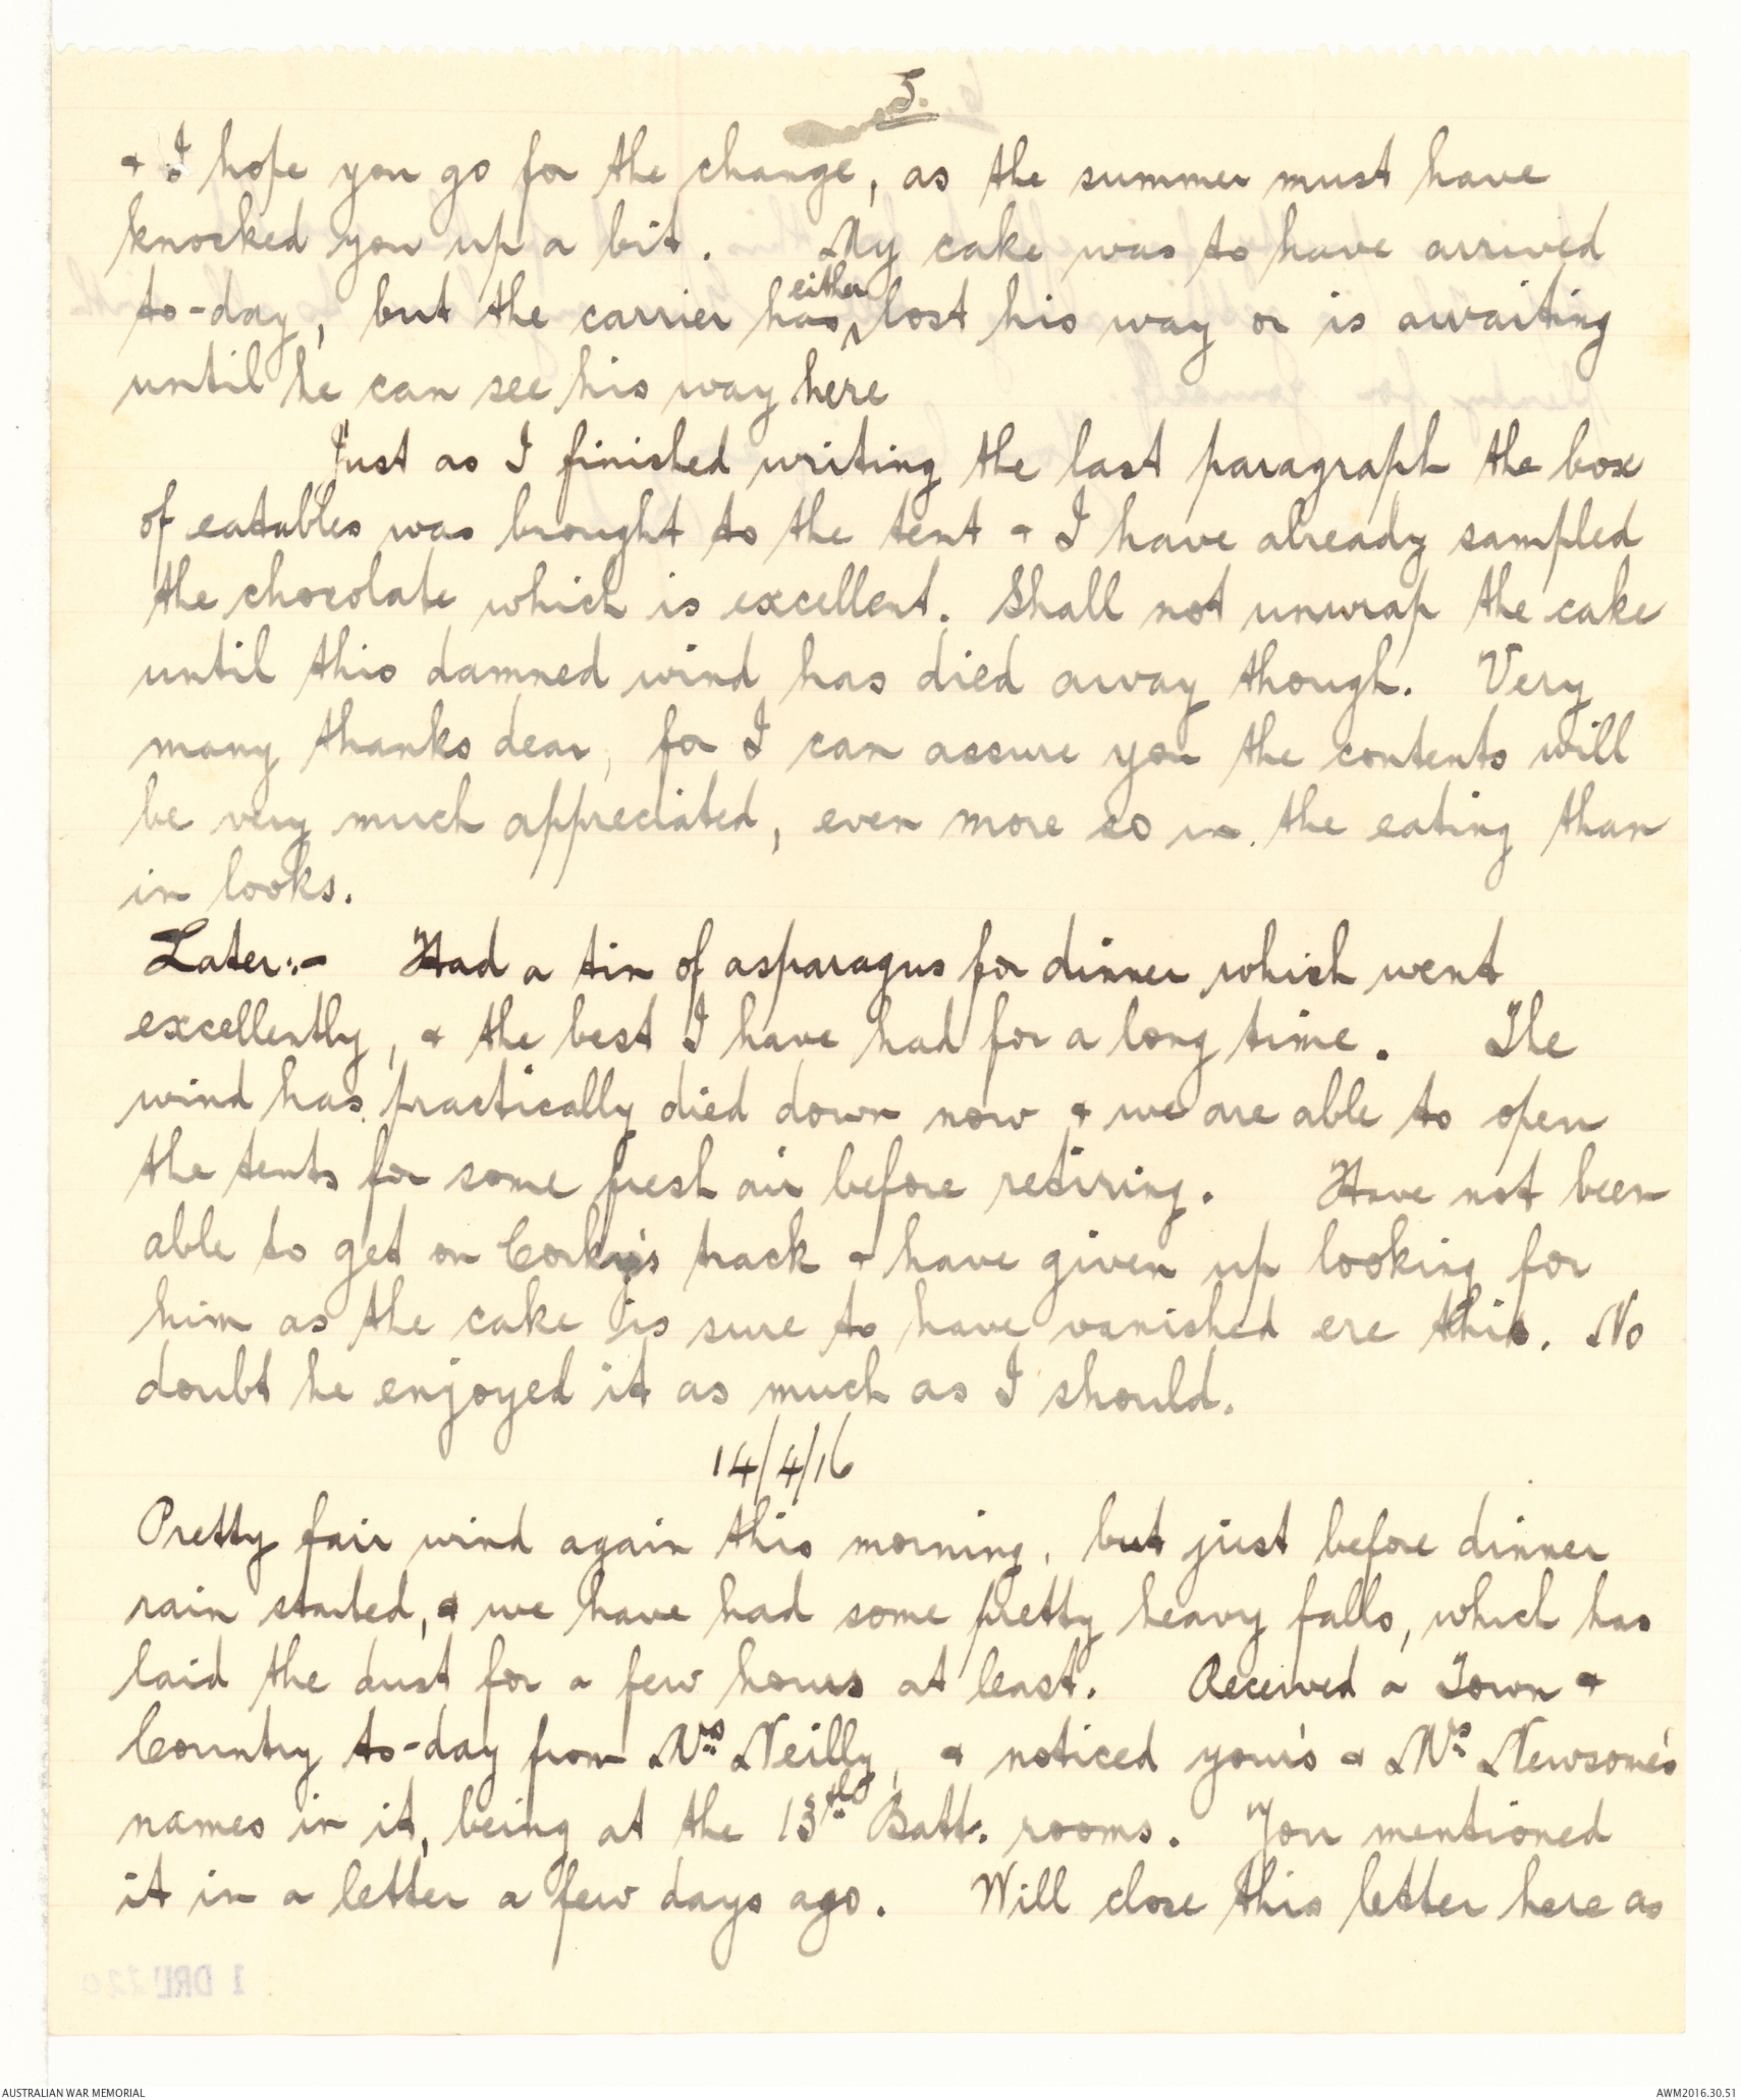 5.
& I hope you go for the change, as the summer must have
knocked you up a bit. My cake was to have arrived
to-day, but the carrier has either lost his way or is awaiting
until he can see his way here
Just as I finished writing the last paragraph the box
of eatables was brought to the tent & I have already sampled
the chocolate which is excellent. Shall not unwrap the cake
until this damned wind has died away though. Very
many thanks dear, for I can assure you the contents will
be very much appreciated, even more so in the eating than
in looks.
Later:- Had a tin of asparagus for dinner which went
excellently, & the best I have had for a long time. The
wind has practically died down now & we are able to open
the tents for some fresh air before retiring. Have not been
able to get on Corky's track & have given up looking for
him as the cake is sure to have vanished ere this. No
doubt he enjoyed it as much as I should.
14/4/16
Pretty fair wind again this morning, but just before dinner
rain started, & we have had some pretty heavy falls, which has
laid the dust for a few hours at least. Received a Town &
Country to-day from Mrs Neilly, & noticed your's & Mrs Newsome's
names in it, being at the 13th Batt. rooms. You mentioned
it in a letter a few days ago. Will close this letter here as
1 DRL
AUSTRALIAN WAR MEMORIAL
AWM2016.30.51